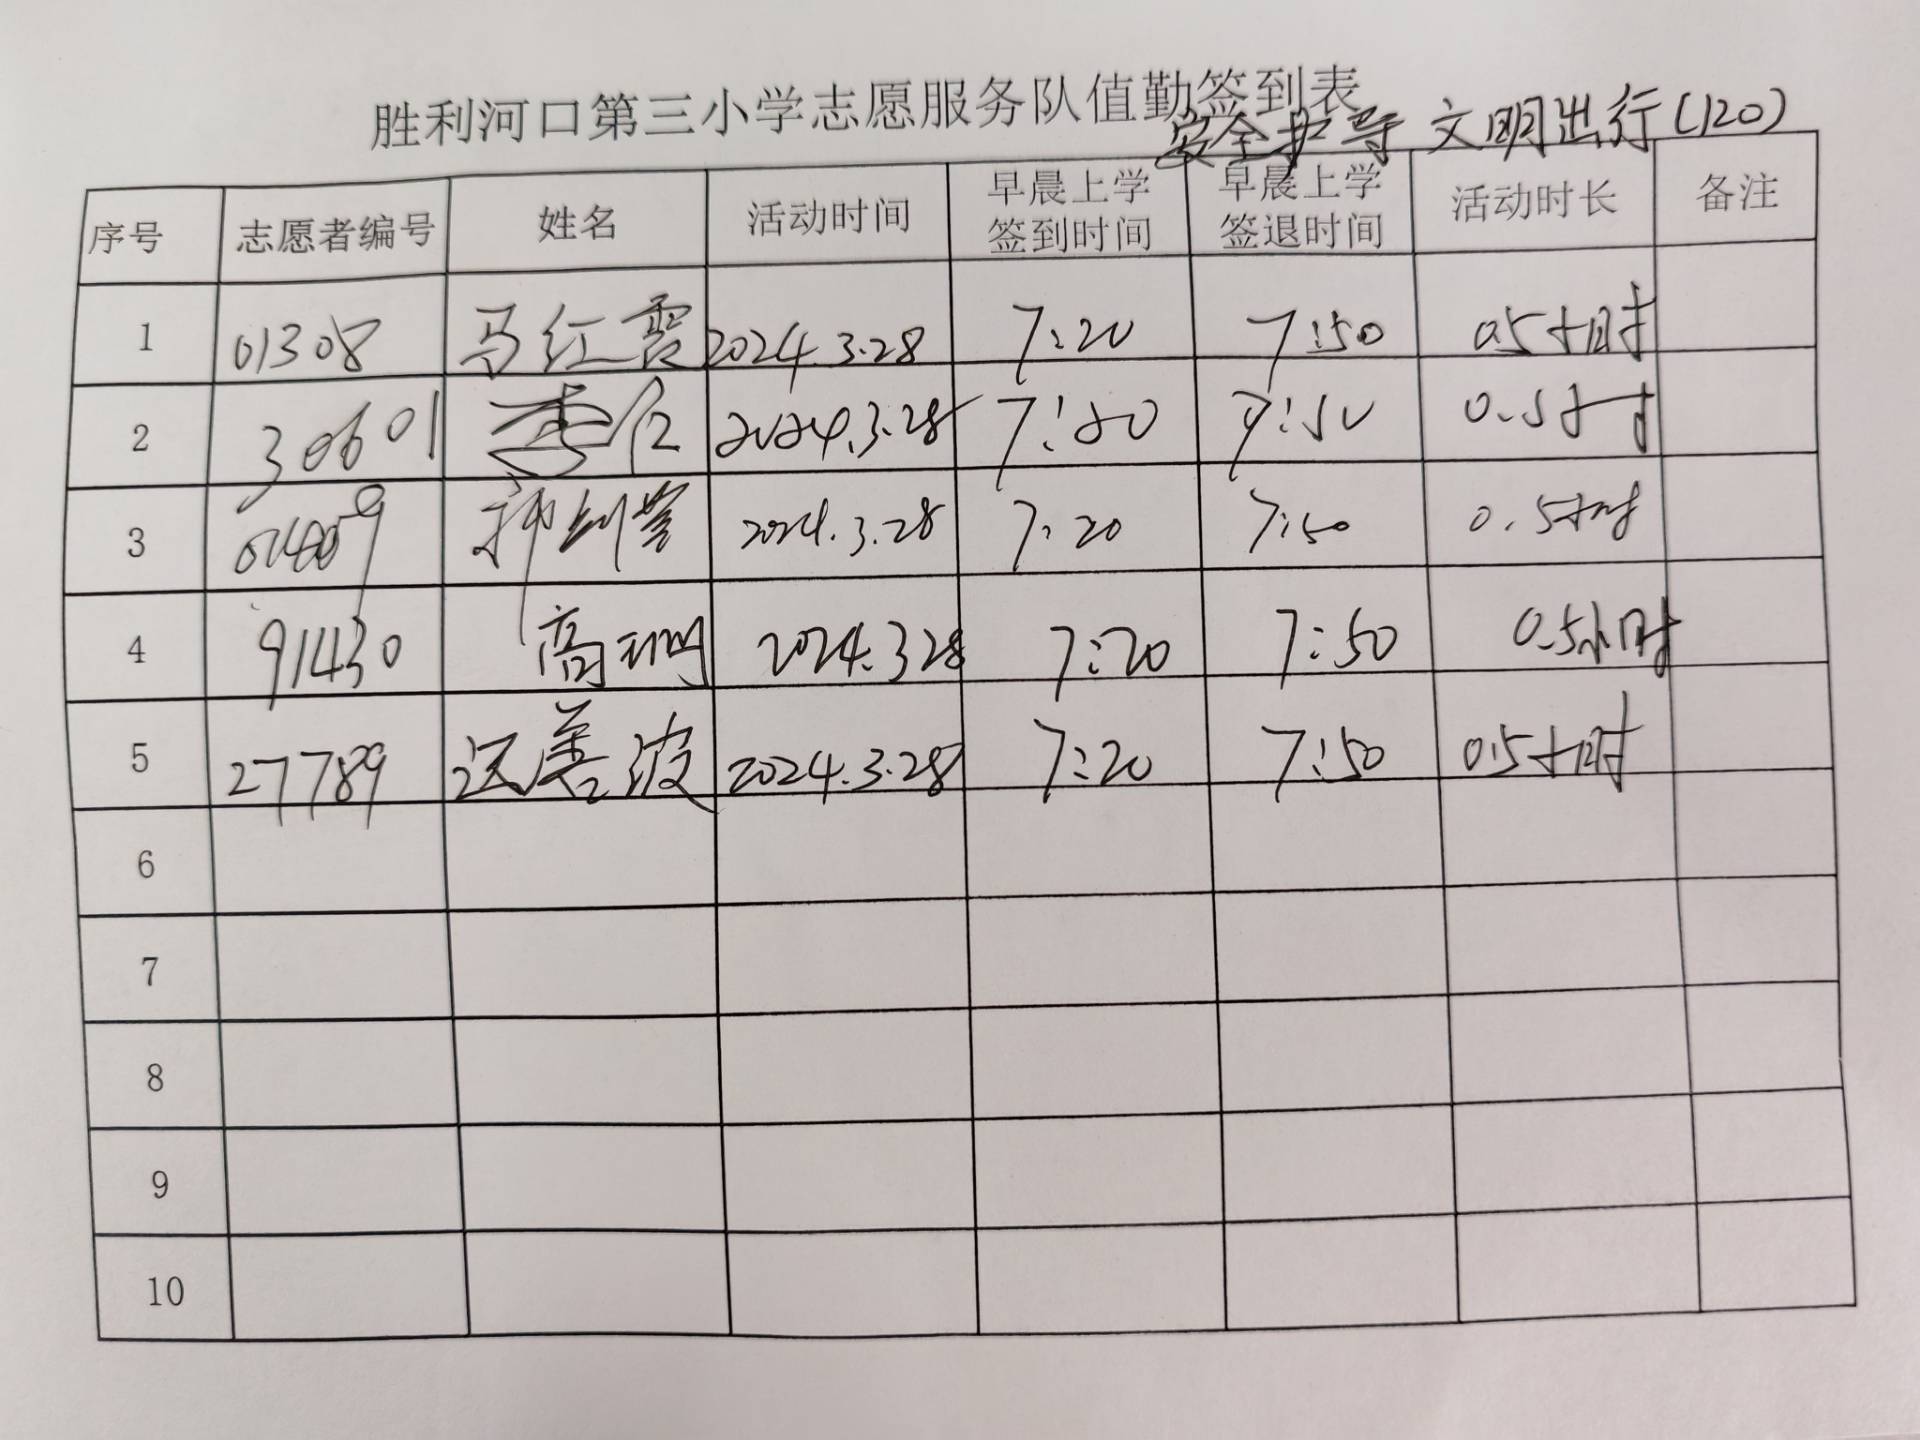 胜利河口第三小学志愿服务队值勤签到表
安全护导 文明出行(120)
序号 志愿者编号 姓名 活动时间 早晨上学签到时间 早晨上学签退时间 活动时长 备注
1 01308 马红霞 2024.3.28 7:20 7:50 0.5小时
2 30601 2024.3.28 7:20 7:50 0.5小时
3 2024.3.28 7:20 7:50 0.5小时
4 91430 高珊 2024.3.28 7:20 7:50 0.5小时
5 27789 2024.3.28 7:20 7:50 0.5小时
6
7
8
9
10